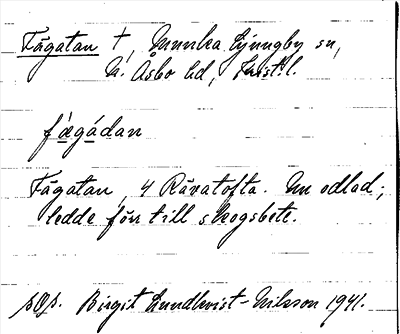 Fågatan †, Munka Ljungby sn,
N. Åsbo hd, Krist. l.
fǻgádan
Fågatan, 4 Råvatofta. Nu odlad;
ledde förr till skogsbete.
Birgit Lundkvist-Nilsson 1941.